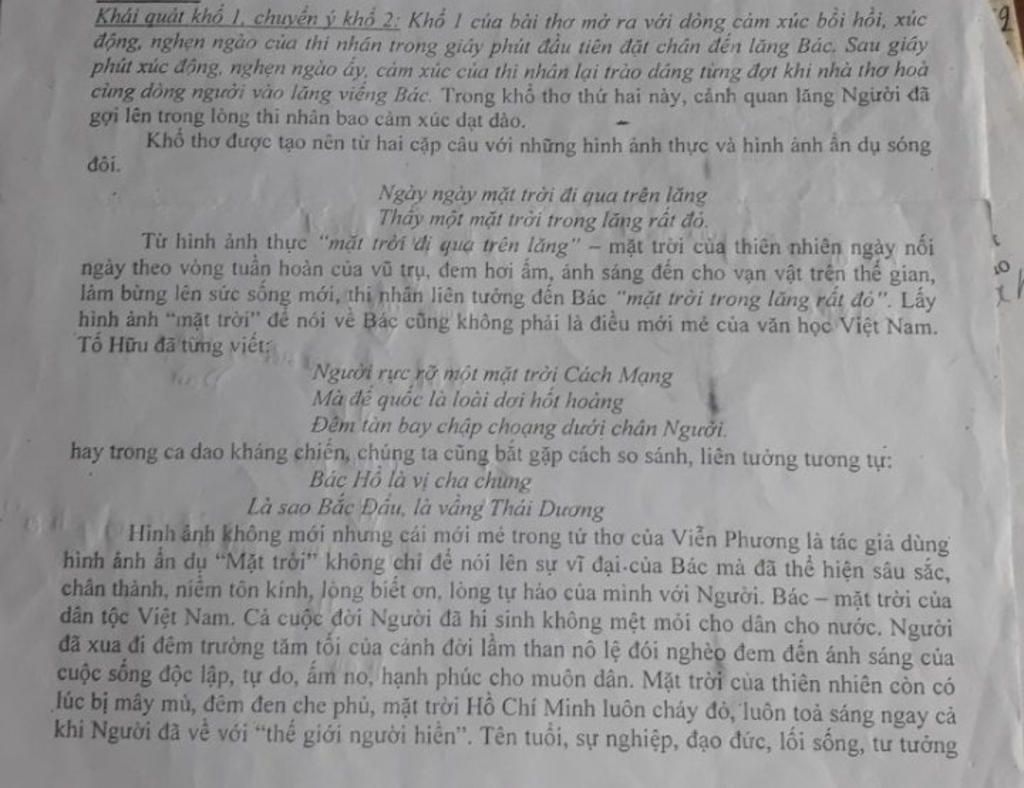 Khái quát khổ 1, chuyển ý khổ 2: Khổ 1 của bài thơ mở ra với dòng cảm xúc bồi hồi, xúc
động, nghẹn ngào của thi nhân trong giây phút đầu tiên đặt chân đến lăng Bác. Sau giây
phút xúc động, nghẹn ngào ấy, cảm xúc của thi nhân lại trào dâng từng đợt khi nhà thơ hoà
cùng dòng người vào lăng viếng Bác. Trong khổ thơ thứ hai này, cảnh quan lăng Người đã
gợi lên trong lòng thi nhân bao cảm xúc dạt dào.
Khổ thơ được tạo nên từ hai cặp câu với những hình ảnh thực và hình ảnh ẩn dụ sóng
đôi.
Ngày ngày mặt trời đi qua trên lăng
Thấy một mặt trời trong lăng rất đỏ.
Từ hình ảnh thực "mặt trời đi qua trên lăng" – mặt trời của thiên nhiên ngày nối
ngày theo vòng tuần hoàn của vũ trụ, đem hơi ấm, ánh sáng đến cho vạn vật trên thế gian,
làm bừng lên sức sống mới, thi nhân liên tưởng đến Bác "mặt trời trong lăng rất đỏ". Lấy
hình ảnh "mặt trời" để nói về Bác cũng không phải là điều mới mẻ của văn học Việt Nam.
Tố Hữu đã từng viết:
Người rực rỡ một mặt trời Cách Mạng
Mà đế quốc là loài dơi hốt hoảng
Đêm tàn bay chập choạng dưới chân Người.
hay trong ca dao kháng chiến, chúng ta cũng bắt gặp cách so sánh, liên tưởng tương tự:
Bác Hồ là vị cha chung
Là sao Bắc Đẩu, là vầng Thái Dương
Hình ảnh không mới nhưng cái mới mẻ trong tứ thơ của Viễn Phương là tác giả dùng
hình ảnh ẩn dụ "Mặt trời" không chỉ để nói lên sự vĩ đại của Bác mà đã thể hiện sâu sắc,
chân thành, niềm tôn kính, lòng biết ơn, lòng tự hào của mình với Người. Bác – mặt trời của
dân tộc Việt Nam. Cả cuộc đời Người đã hi sinh không mệt mỏi cho dân cho nước. Người
đã xua đi đêm trường tăm tối của cảnh đời lầm than nô lệ đói nghèo đem đến ánh sáng của
cuộc sống độc lập, tự do, ấm no, hạnh phúc cho muôn dân. Mặt trời của thiên nhiên còn có
lúc bị mây mù, đêm đen che phủ, mặt trời Hồ Chí Minh luôn cháy đỏ, luôn toả sáng ngay cả
khi Người đã về với "thế giới người hiền". Tên tuổi, sự nghiệp, đạo đức, lối sống, tư tưởng